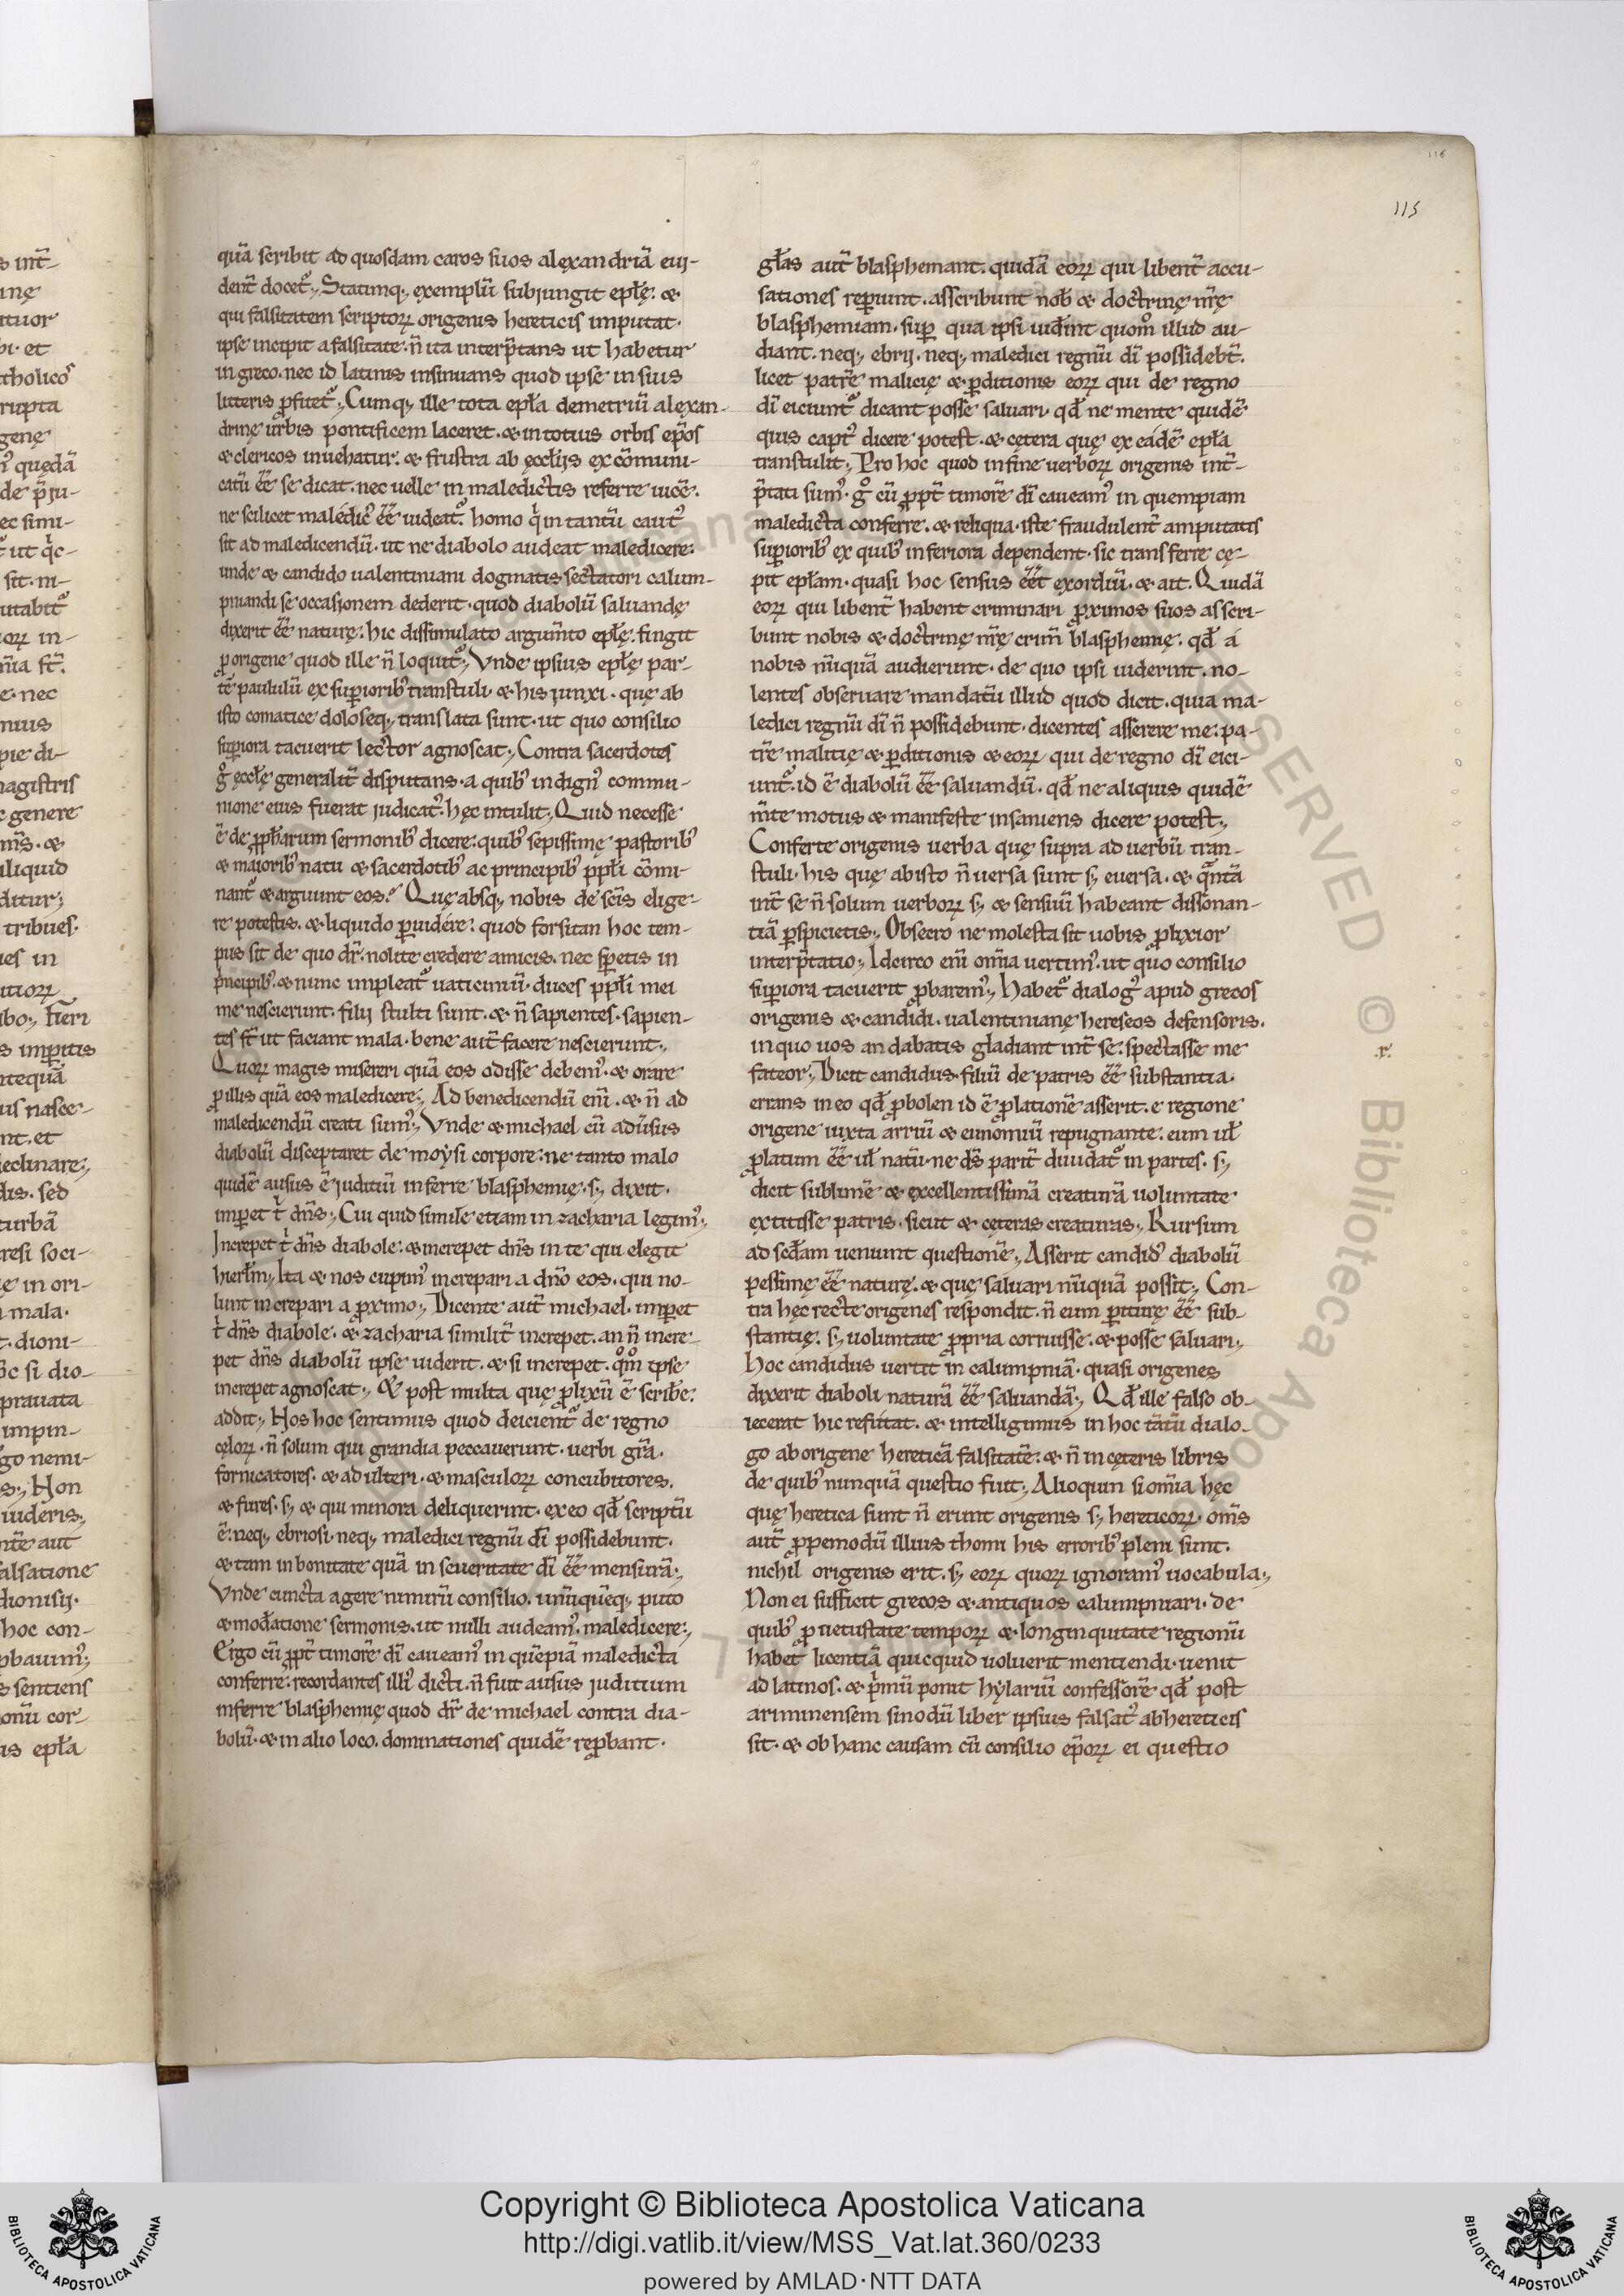 116
115
quā scribit ad quosdam caros suos alexandriā eui-
dent̄ docet᷒. Statimq; exemplū subjungit epłę. &
qui falsitatem scriptoꝝ origenis hereticis imputat.
ipse incipit a falsitate. n̄ ita interp̄tans ut habetur
in greco. nec id latinis insinuans quod ipse in suis
litteris ꝓfitet᷒. Cumq; ille tota epła demetriū alexan-
drinę urbis pontificem laceret. & in totius orbis ep̄os
& clericos inuehatur. & frustra ab ęccłijs excōmuni-
catū ēē se dicat. nec uelle in maledictis referre uicē.
ne scilicet maledic᷒ ēē uideat᷒. homo q̇ in tantū caut᷒
sit ad maledicendū. ut ne diabolo audeat maledicere.
unde & candido ualentiniani dogmatis sectatori calum-
pniandi se occasionem dederit. quod diabolū saluandę
dixerit ēē naturę. hic dissimulato argum̄to epłę. fingit
ꝓ origene quod ille n̄ loquit᷒. Vnde ipsius epłę par-
tē paululū ex supioriƀ transtuli. & his junxi. quę ab
isto comatice doloseq; translata sunt. ut quo consilio
supiora tacuerit lector agnoscat. Contra sacerdotes
g° ęccłę generalit̄ disputans. a quiƀ indign᷒ commu-
nione eius fuerat judicat᷒. hęc intulit. Quid necesse
ē de ꝓpħarum sermoniƀ dicere. quiƀ sepissimę pastoriƀ
& maioriƀ natu & sacerdotiƀ ac principiƀ ppłi cōmi-
nant᷒ & arguunt eos. Quę absq; nobis de scīs elige-
re potestis. & liquido puidere. quod forsitan hoc tem-
pus sit de quo dr̄. nolite credere amicis. nec spetis in
ṗncipiƀ. & nunc impleat᷒ uaticiniū. duces ppłi mei
me nescierunt. filij stulti sunt. & n̄ sapientes. sapien-
tes st̄ ut faciant mala. bene aut̄ facere nescierunt.
Quoꝝ magis misereri quā eos odisse debem᷒. & orare
ꝓ illis quā eos maledicere. Ad benedicendū eni᷒. & n̄ ad
maledicendū creati sum᷒. Vnde & michael cū adūsus
diabolū disceptaret de moysi corpore. ne tanto malo
quidē ausus ē juditiū inferre blasphemię. s; dixit.
impet t̄ dn̄s. Cui quid simile etiam in zacharia legim᷒.
Increpet t̄ dn̄s diabole. & increpet dn̄s in te qui elegit
hierłm. Ita & nos cupim᷒ increpari a dn̄o eos. qui no-
lunt increpari a ꝓximo. Dicente aut̄ michael. impet
t̄ dn̄s diabole. & zacharia similit̄ increpet. an n̄ incre-
pet dn̄s diabolū ipse uiderit. & si increpet. q̊m̊ ipse
increpet agnoscat. & post multa quę ꝓlixū ē scriƀe.
addit. Nos hoc sentimus quod deicient᷒ de regno
cęloꝝ. n̄ solum qui grandia peccauerunt. uerbi gr̄a.
fornicatores. & adulteri. & masculoꝝ concubitores.
& fures. s; & qui minora deliquerint. ex eo qđ scriptū
ē. neq; ebriosi. neq; maledici regnū dī possidebunt.
& tam in bonitate quā in seueritate dī ēē mensurā.
Vnde cuncta agere nimirū consilio. unūquēq; puto
& mođatione sermonis. ut nulli audeam᷒ maledicere.
Ergo cū ꝓpt̄ timorē dī caueam᷒ in quēpiā maledicta
conferre. recordantes illi᷒ dicti. n̄ fuit ausus juditium
inferre blasphemię quod dr̄ de michael contra dia-
bolū. & in alio loco. dominationes quidē reꝓbant.
głas aut̄ blasphemant. quidā eoꝝ qui libent̄ accu-
sationes repiunt. asscribunt noƀ & doctrinę nr̄ę
blasphemiam. sup qua ipsi uiđint quom̊ illud au-
diant. neq; ebrij. neq; maledici regnū dī possidebt̄.
licet patrē malicię & pditionis eoꝝ qui de regno
dī eiciunt᷒ dicant posse saluari. qđ ne mente quidē
quis capt᷒ dicere potest. & cętera quę ex eadē epła
transtulit. Pro hoc quod in fine uerboꝝ origenis int̄-
p̄tati sum᷒. g° cū ꝓpt̄ timorē dī caueam᷒ in quempiam
maledicta conferre. & reliqua. iste fraudulent̄ amputatis
supioriƀ ex quiƀ inferiora dependent. sic transferre cę-
pit epłam. quasi hoc sensus ēēt exordiū. & ait. Quidā
eoꝝ qui libent̄ habent criminari ꝓximos suos asscri-
bunt nobis & doctrinę nr̄ę crim̄ blasphemię. qđ a
nobis nūquā audierunt. de quo ipsi uiderint. no-
lentes obseruare mandatū illud quod dicit. quia ma-
ledici regnū dī n̄ possidebunt. dicentes asserere me. pa-
trē malitię & pditionis & eoꝝ qui de regno dī eici-
unt᷒. id ē diabolū ēē saluandū. qđ ne aliquis quidē
m̄te motus & manifeste insaniens dicere potest.
Conferte origenis uerba quę supra ad uerbū tran-
stuli. his quę ab isto n̄ uersa sunt s; euersa. & q̄ntā
int̄ se n̄ solum uerboꝝ s; & sensuū habeant dissonan-
tiā pspicietis. Obsecro ne molesta sit uobis ꝓlixior
interp̄tatio. Idcirco eni᷒ om̄ia uertim᷒. ut quo consilio
supiora tacuerit ꝓbarem᷒. Habet᷒ dialog᷒ apud grecos
origenis & candidi. ualentinianę hereseos defensoris.
in quo uos andabatis gladiant int̄ se. spectasse me
.r.
fateor. Dicit candidus. filiū de patris ēē substantia.
errans in eo qđ ꝓbolen id ē ꝓlationē asserit. e regione
origene iuxta arriū & eunomiū repugnante. eum uł
ꝓlatum ēē uł natū. ne ds̄ parit̄ diuidat᷒ in partes. s;
dicit sublimē & excellentissimā creaturā uoluntate
extitisse patris. sicut & cęteras creaturas. Rursum
ad scđam ueniunt questionē. Asserit candid᷒ diabolū
pessimę ēē naturę. & quę saluari nūquā possit. Con-
tra hęc recte origenes respondit. n̄ eum piturę ēē sub-
stantię. s; uoluntate ꝓpria corruisse. & posse saluari.
Hoc candidus uertit in calumpniā. quasi origenes
dixerit diaboli naturā ēē saluandā. Qđ ille falso ob-
iecerat hic refutat. & intelligimus in hoc tātū dialo-
go ab origene hereticā falsitatē. & n̄ in cęteris libris
de quiƀ nunquā questio fuit. Alioquin si om̄ia hęc
quę heretica sunt n̄ erunt origenis s; hereticoꝝ. om̄s
aut̄ ꝓpemodū illius thomi his erroriƀ pleni sunt.
nichil origenis erit. s; eoꝝ quoꝝ ignoram᷒ uocabula.
Non ei sufficit grecos & antiquos calumpniari. de
quiƀ ꝓ uetustate tempoꝝ & longinquitate regionū
habet licentiā quicquid uoluerit mentiendi. uenit
ad latinos. & ṗmū ponit hylariū confessorē qđ post
ariminensem sinodū liber ipsius falsat᷒ ab hereticis
sit. & ob hanc causam cū consilio ep̄oꝝ ei questio
s int̄-
inę
ituor
bi. et
tholico᷒
rupta
genę
quędā
de p̄ju-
ec simi-
ut q̇c-
sit. ni-
utabit᷒
oꝝ in-
e. nec
nius
pie di-
magistris
genere
m̄s. &
aliquid
ditur;
tribues.
es in
itioꝝ
s impitis
ntequā
us nasce-
nt. et
declinare;
dis. sed
turbā
resi soci-
ę in ori-
mala.
t. dioni-
c si dio-
prauata
impin-
go nemi-
s; Non
iuderis;
nte aut
falsatione
dionisij.
hoc con-
sentiens
onū cor-
is epła
Copyright © Biblioteca Apostolica Vaticana
http://digi.vatlib.it/view/MSS_Vat.lat.360/0233
powered by AMLAD·NTT DATA
BIBLIOTECA APOSTOLICA VATICANA
BIBLIOTECA APOSTOLICA VATICANA